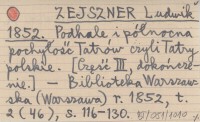 ZEJSZNER Ludwik
1852. Podhale i północna
pochyłość Tatrów czyli Tatry
polskie. [Część III, dokończe-
nie.] — Biblioteka Warszaw-
ska (Warszawa) r. 1852, t.
2 (46), s. 116-130.